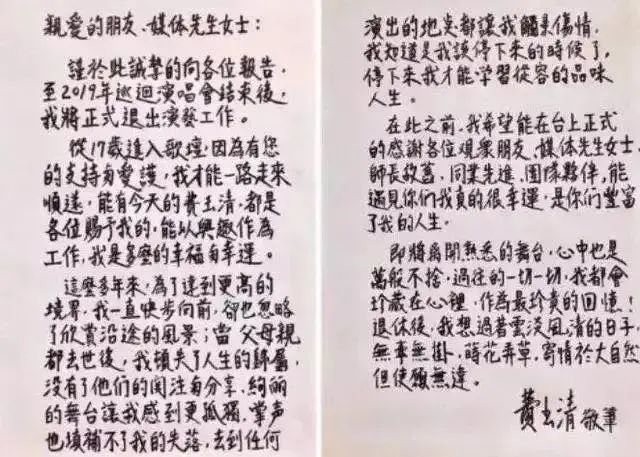 親愛的朋友、媒体先生女士：
謹於此誠摯的向各位報告，
至2019年巡迴演唱會結束後，
我將正式退出演藝工作。
從17歲進入歌壇，因為有您
的支持与愛護，我才能一路走來
順遂，能有今天的費玉清，都是
各位賜予我的，能以興趣作為
工作，我是多麼的幸福与幸運。
這麼多年來，為了達到更高的
境界，我一直快步向前，卻也忽略
了欣賞沿途的風景；當父母親
都去世後，我頓失了人生的歸屬，
沒有了他們的関注与分享，絢麗
的舞台讓我感到更孤獨，掌声
也填補不了我的失落，去到任何
演出的地点都讓我觸景傷情，
我知道是我該停下來的時候了，
停下來我才能学習從容的品味
人生。
在此之前，我希望能在台上正式
的感謝各位觀眾朋友、媒体先生女士、
師長故舊、同業先進、團隊夥伴，能
遇見你們我真的很幸運，是你們豐富
了我的人生。
即將離開熟悉的舞台，心中也是
萬般不捨，過往的一切一切，我都會
珍藏在心裡，作為最珍貴的回憶！
退休後，我想過著雲淡風清的日子，
無牽無掛，蒔花弄草，寄情於大自然
但使願無違。
費玉清 敬筆